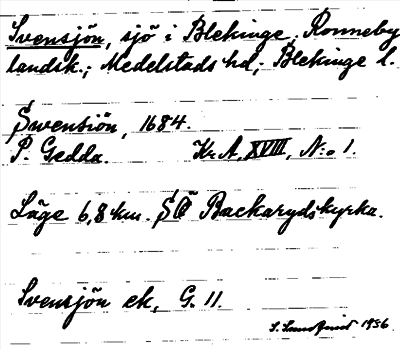 Svensjön, sjö i Blekinge, Ronneby
landsk.; Medelstads hd; Blekinge l.
Swensiön, 1684.
P. Gedda. Kr.A, XVIII, N:o 1.
Läge 6,8 km. SÖ Backarydskyrka.
Svensjön ek, G. 11.
1956